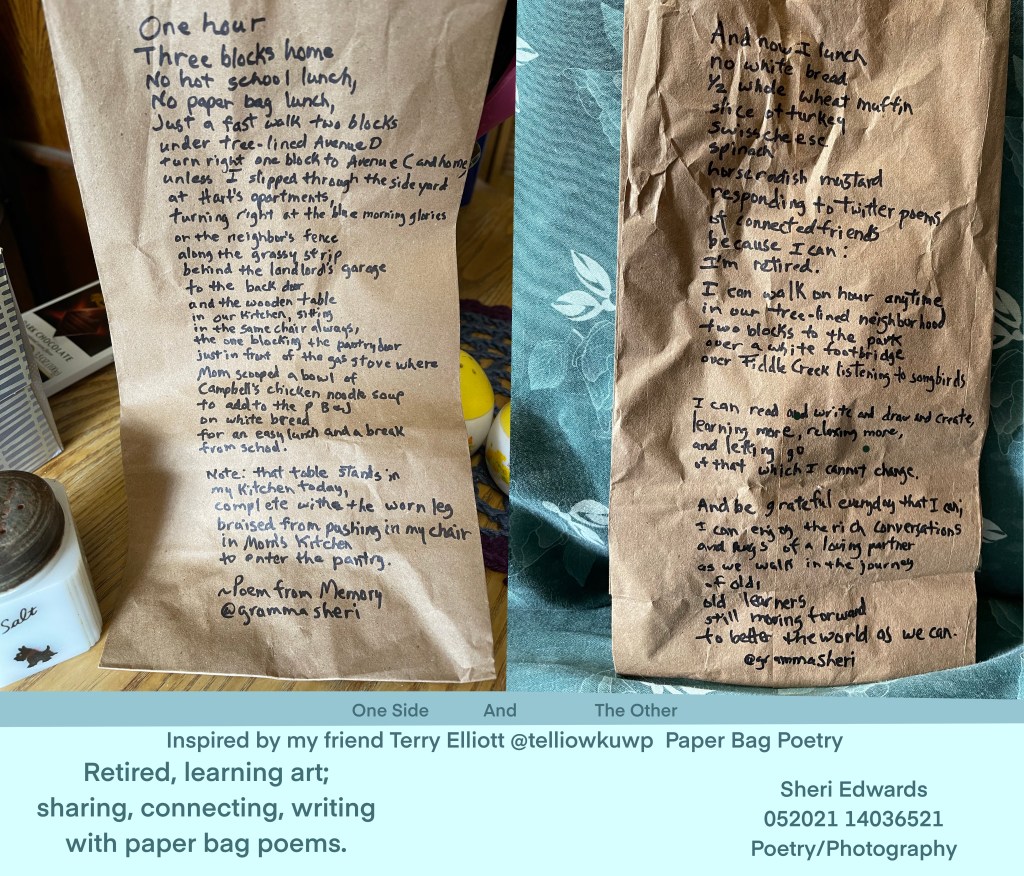 One hour
Three blocks home
No hot school lunch,
No paper bag lunch,
Just a fast walk two blocks
under tree-lined Avenue D
turn right one block to Avenue C and home,
unless I slipped through the side yard
at Hart's apartments,
turning right at the blue morning glories
on the neighbor's fence
along the grassy strip
behind the landlord's garage
to the back door
and the wooden table
in our kitchen, sitting
in the same chair always,
the one blocking the pantry door
just in front of the gas stove where
Mom scooped a bowl of
Campbell's chicken noodle soup
to add to the P B and J
on white bread
for an easy lunch and a break
from school.
Note: that table stands in
my kitchen today,
complete with the worn leg
braised from pushing in my chair
in Mom's kitchen
to enter the pantry.
~Poem from Memory
@grammasheri
CHOCOLATE
Salt
And now I lunch
no white bread
1/2 whole wheat muffin
slice of turkey
swiss cheese
spinach
horseradish mustard
responding to twitter poems
of connected friends
because I can:
I'm retired.
I can walk an hour anytime
in our tree-lined neighborhood
two blocks to the park
over a white footbridge
over Fiddle Creek listening to songbirds
I can read and write and draw and create,
learning more, relaxing more,
and letting go
of that which I cannot change.
And be grateful everyday that I can;
I can enjoy the rich conversations
and hugs of a loving partner
as we walk in the journey
of old,
old learners
still moving forward
to better the world as we can.
@grammasheri
One Side And The Other
Inspired by my friend Terry Elliott @telliowkuwp Paper Bag Poetry
Retired, learning art;
sharing, connecting, writing
with paper bag poems.
Sheri Edwards
052021 14036521
Poetry/Photography